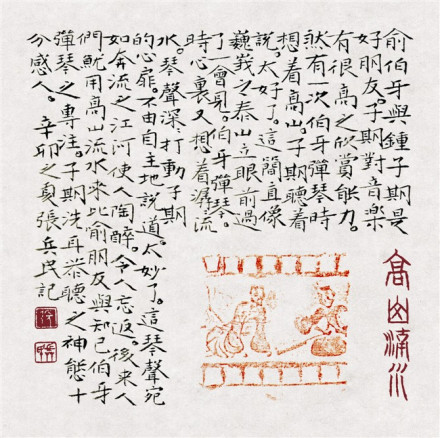 高山流水
俞伯牙與鍾子期是
好朋友。子期對音樂
有很高之欣賞能力。
然有一次伯牙彈琴時
想着高山。子期聽着
說。太好了。這簡直像
巍峩之泰山立眼前過
了一會見。伯牙彈琴
時心裏又想着潺流
水。琴聲深打動子期
的心扉。不由自主地說道。太妙了。這琴聲宛
如奔流之江河使人陶醉。令人忘返。後來人
們就用高山流水來比俞朋友與知己伯牙
彈琴之專注。子期洗耳恭聽之神態十
分感人。辛卯之夏張兵民記